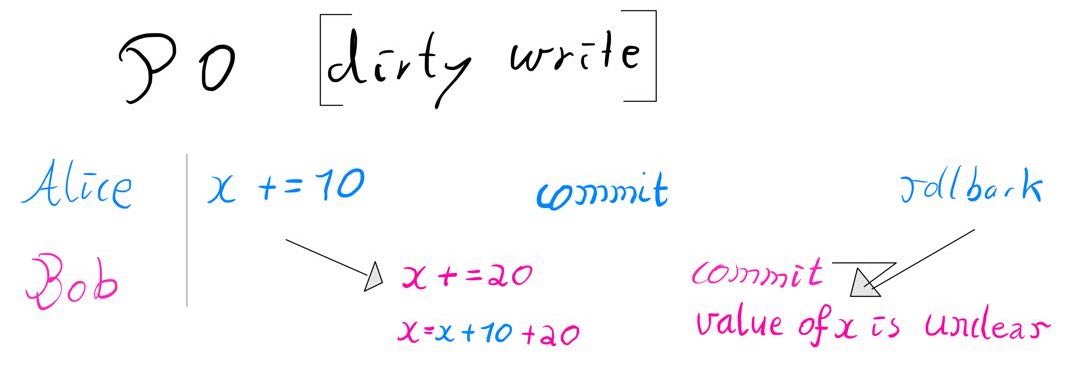 P0 [dirty write]
Alice x += 10 commit rollback
Bob x += 20 commit
x=x+10+20 value of x is unclear